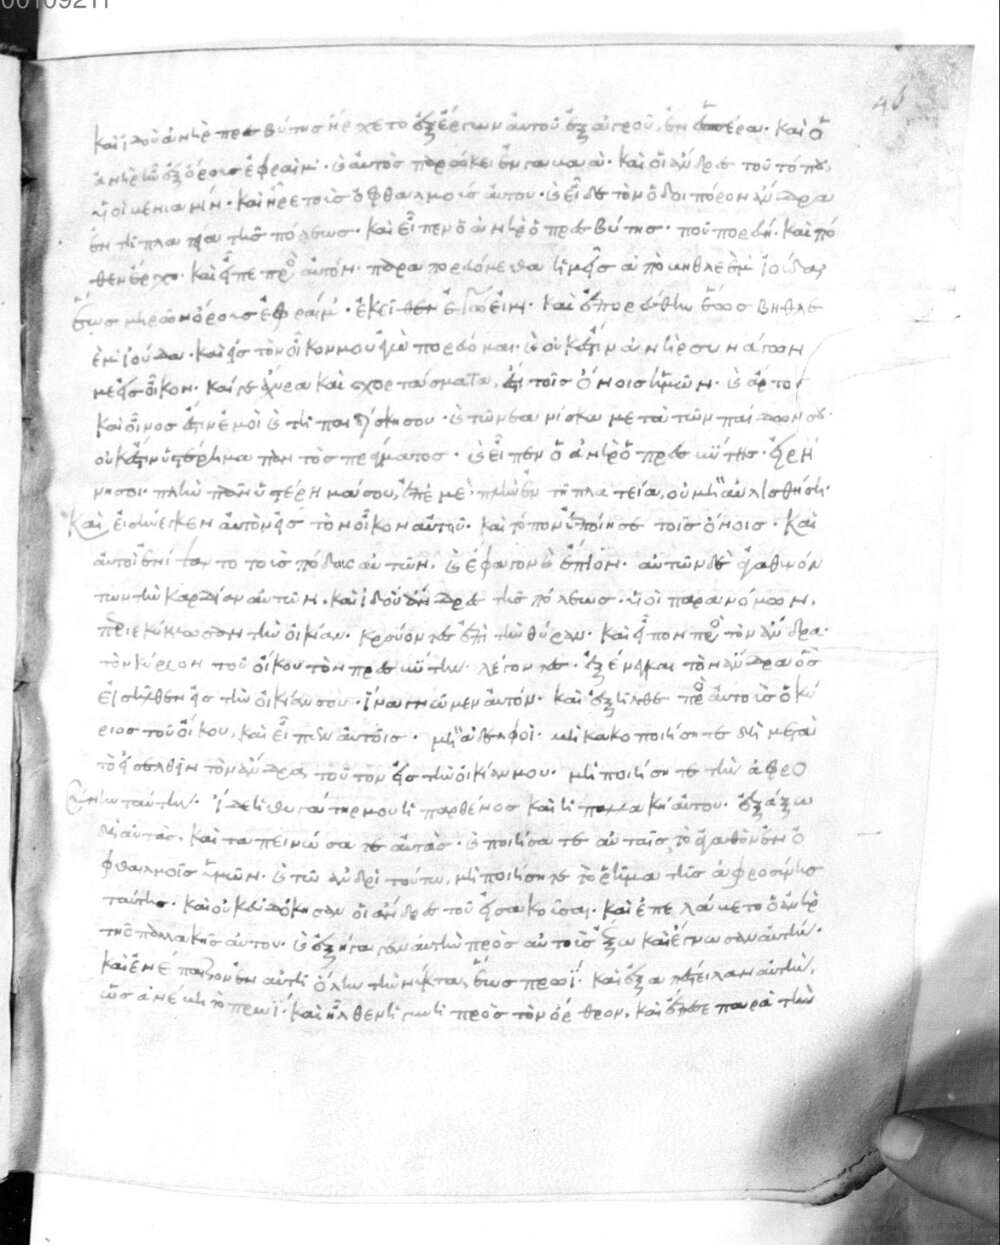 00109211
46
καὶ ἰδοὺ ἀνὴρ πρεσβύτης ἤρχετο ἐξ ἔργων αὐτοῦ ἐξ ἀγροῦ, ἐν ἑσπέρα· καὶ ὁ
ἀνὴρ ἦν ἐξ ὄρους ἐφραΐμ· καὶ αὐτὸς παρώκει ἐν γαβαά· καὶ οἱ ἄνδρες τοῦ τόπου,
υἱοὶ βενιαμήν· καὶ ἦρε τοῖς ὀφθαλμοῖς αὐτοῦ· καὶ εἶδε τὸν ὁδοιπόρον ἄνδρα
ἐν τῆ πλατεία τῆς πόλεως· καὶ εἶπεν ὁ ἀνὴρ ὁ πρεσβύτης· ποῦ πορεύη· καὶ πό
θεν ἔρχη· καὶ εἶπε πρὸς αὐτόν· παραπορευόμεθα ἡμεῖς ἀπὸ βηθλεὲμ ἰούδα,
ἕως μηρῶν ὄρους ἐφραΐμ· ἐκεῖθεν ἐγώ εἰμι· καὶ ἐπορεύθην ἕως βηθλεὲμ
ἰούδα· καὶ εἰς τὸν οἶκόν μου ἐγὼ πορεύομαι· καὶ οὐκ ἔστιν ἀνὴρ συνάγων
με εἰς οἶκον· καί γε ἄχυρα καὶ χορτάσματα, ἔστι τοῖς ὄνοις ἡμῶν· καὶ ἄρτος
καὶ οἶνος ἔστιν ἐμοὶ καὶ τῆ παιδίσκη σου· καὶ τῶ νεανίσκω μετὰ τῶν παίδων σου·
οὐκ ἔστιν ὑστέρημα παντὸς πράγματος· καὶ εἶπεν ὁ ἀνὴρ ὁ πρεσβύτης· εἰρή
νη σοι· πλὴν πᾶν ὑστέρημά σου, ἐπ' ἐμέ· πλὴν ἐν τῆ πλατεία, οὐ μὴ αὐλισθήση·
καὶ εἰσήνεγκεν αὐτὸν εἰς τὸν οἶκον αὐτοῦ· καὶ τόπον ἐποίησε τοῖς ὄνοις· καὶ
αὐτοὶ ἐνίψαντο τοὺς πόδας αὐτῶν, καὶ ἔφαγον καὶ ἔπιον· αὐτῶν δὲ ἀγαθυνόν
των τὴν καρδίαν αὐτῶν, καὶ ἰδοὺ ἄνδρες τῆς πόλεως· υἱοὶ παρανόμων,
περιεκύκλωσαν τὴν οἰκίαν· κρούοντες ἐπὶ τὴν θύραν· καὶ εἶπον πρὸς τὸν ἄνδρα·
τὸν κύριον τοῦ οἴκου τὸν πρεσβύτην· λέγοντες· ἐξένεγκαι τὸν ἄνδρα ὃς
εἰσῆλθεν εἰς τὴν οἰκίαν σου· ἵνα γνῶμεν αὐτόν· καὶ ἐξῆλθε πρὸς αὐτοὺς ὁ κύ
ριος τοῦ οἴκου, καὶ εἶπεν αὐτοῖς· μὴ ἀδελφοί· μὴ κακοποιήσητε δὴ μετὰ
τὸ εἰσελθεῖν τὸν ἄνδρα τοῦτον εἰς τὴν οἰκίαν μου· μὴ ποιήσητε τὴν ἀφρο
σύνην ταύτην· ἰδὲ ἡ θυγάτηρ μου ἡ παρθένος καὶ ἡ παλλακὴ αὐτοῦ· ἐξάξω
δὴ αὐτάς· καὶ ταπεινώσατε αὐτάς· καὶ ποιήσατε αὐταῖς τὸ ἀγαθὸν ἐν ὀ
φθαλμοῖς ὑμῶν· καὶ τῶ ἀνδρὶ τούτω, μὴ ποιήσητε τὸ ῥῆμα τῆς ἀφροσύνης
ταύτης· καὶ οὐκ εὐδόκησαν οἱ ἄνδρες τοῦ εἰσακοῦσαι· καὶ ἐπελάβετο ὁ ἀνὴρ
τῆς παλλακῆς αὐτοῦ· καὶ ἐξήγαγεν αὐτὴν πρὸς αὐτοὺς ἔξω καὶ ἔγνωσαν αὐτήν·
καὶ ἐνέπαιζον ἐν αὐτῆ ὅλην τὴν νύκτα, ἕως πρωΐ· καὶ ἐξαπέστειλαν αὐτὴν,
ὡς ἀνέβη τὸ πρωΐ· καὶ ἦλθεν ἡ γυνὴ πρὸς τὸν ὄρθρον, καὶ ἔπεσε παρὰ τὴν